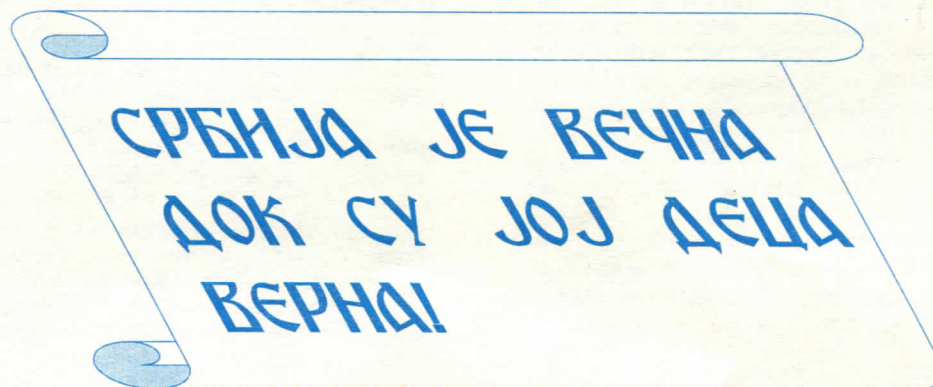 СРБИЈА ЈЕ ВЕЧНА
ДОК СУ ЈОЈ ДЕЦА
ВЕРНА!